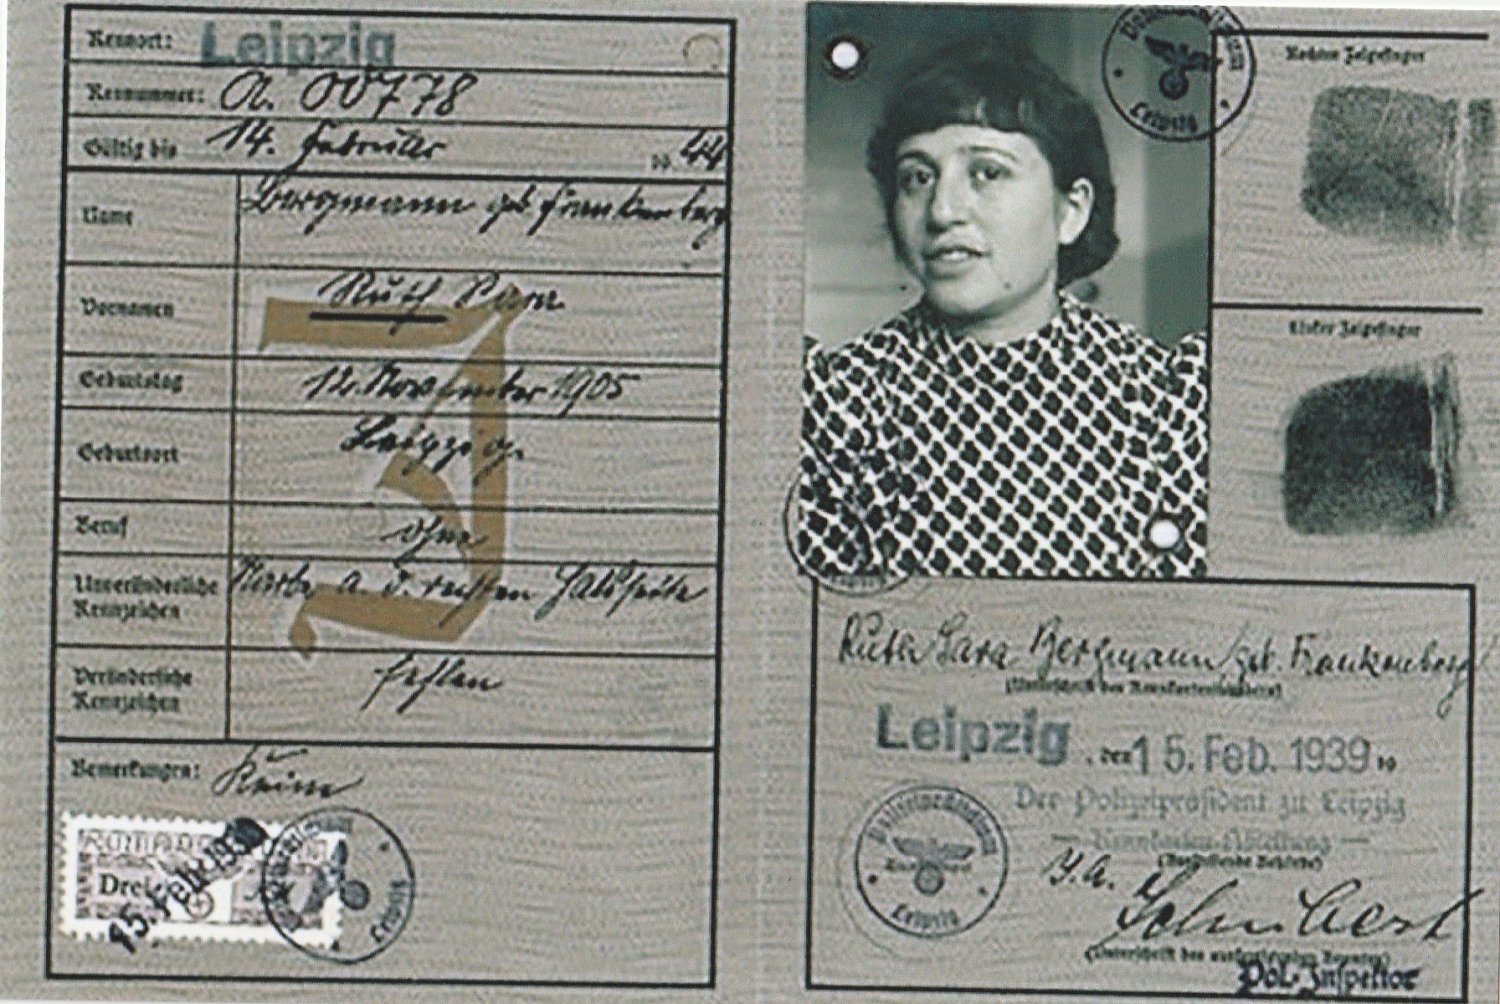 Kennort: Leipzig
Kennummer: A. 00778
Gültig bis 14. Februar 19 44
Name Bergmann geb Frankenberg
Vornamen Ruth Sara
Geburtstag 12. November 1905
Geburtsort Leipzig.
Beruf ohne
Unveränderliche Kennzeichen Narbe a. d. rechten Halsseite
Veränderliche Kennzeichen fehlen
Bemerkungen: Keine
J
Drei
15. Feb. 1939
Leipzig
Leipzig
Rechter Zeigefinger
Linker Zeigefinger
Ruth Sara Bergmann geb. Frankenberg
(Unterschrift des Kennkarteninhabers)
Leipzig, den 15. Feb. 1939 19
Der Polizeipräsident zu Leipzig
— Kennkarten-Abteilung —
(Ausstellende Behörde)
Leipzig
I.A. Schubert
(Unterschrift des ausfertigenden Beamten)
Pol.-Inspektor